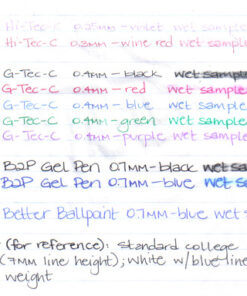 Hi-Tec-C 0.25mm-violet wet sample
Hi-Tec-C 0.3mm-wine red wet sample
G-Tec-C 0.4mm-black wet sample
G-Tec-C 0.4mm-red wet sample
G-Tec-C 0.4mm-blue wet sample
G-Tec-C 0.4mm-green wet sample
G-Tec-C 0.4mm-purple wet sample
B2P Gel Pen 0.7mm-black wet sam
B2P Gel Pen 0.7mm-blue wet sam
Better Ballpoint 0.7mm-blue wet s
(for reference): standard college
(7mm line height); white w/blue line
weight